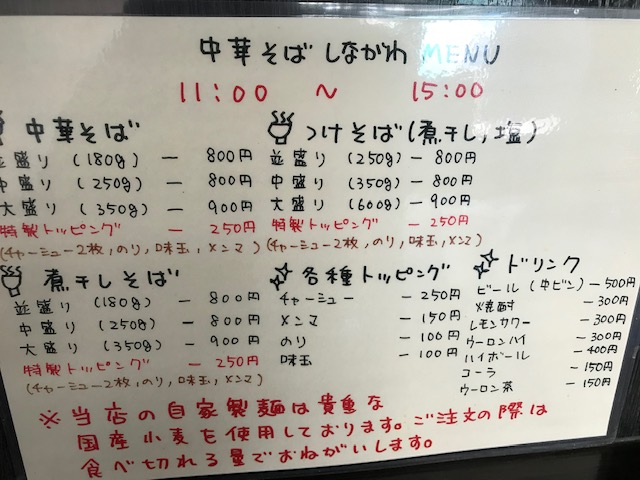 中華そば しながわ MENU
11:00 ～ 15:00
中華そば
並盛り (180g) ー 800円
中盛り (250g) ー 800円
大盛り (350g) ー 900円
特製トッピング ー 250円
(チャーシュー2枚,のり,味玉,メンマ)
つけそば(煮干し,塩)
並盛り (250g) ー 800円
中盛り (350g) ー 800円
大盛り (600g) ー 900円
特製トッピング ー 250円
(チャーシュー2枚,のり,味玉,メンマ)
煮干しそば
並盛り (180g) ー 800円
中盛り (250g) ー 800円
大盛り (350g) ー 900円
特製トッピング ー 250円
(チャーシュー2枚,のり,味玉,メンマ)
各種トッピング
チャーシュー ー 250円
メンマ ー 150円
のり ー 100円
味玉 ー 100円
ドリンク
ビール (中ビン) ー 500円
焼酎 ー 300円
レモンサワー ー 300円
ウーロンハイ ー 300円
ハイボール ー 400円
コーラ ー 150円
ウーロン茶 ー 150円
※当店の自家製麺は貴重な
国産小麦を使用しております。ご注文の際は
食べ切れる量でおねがいします。